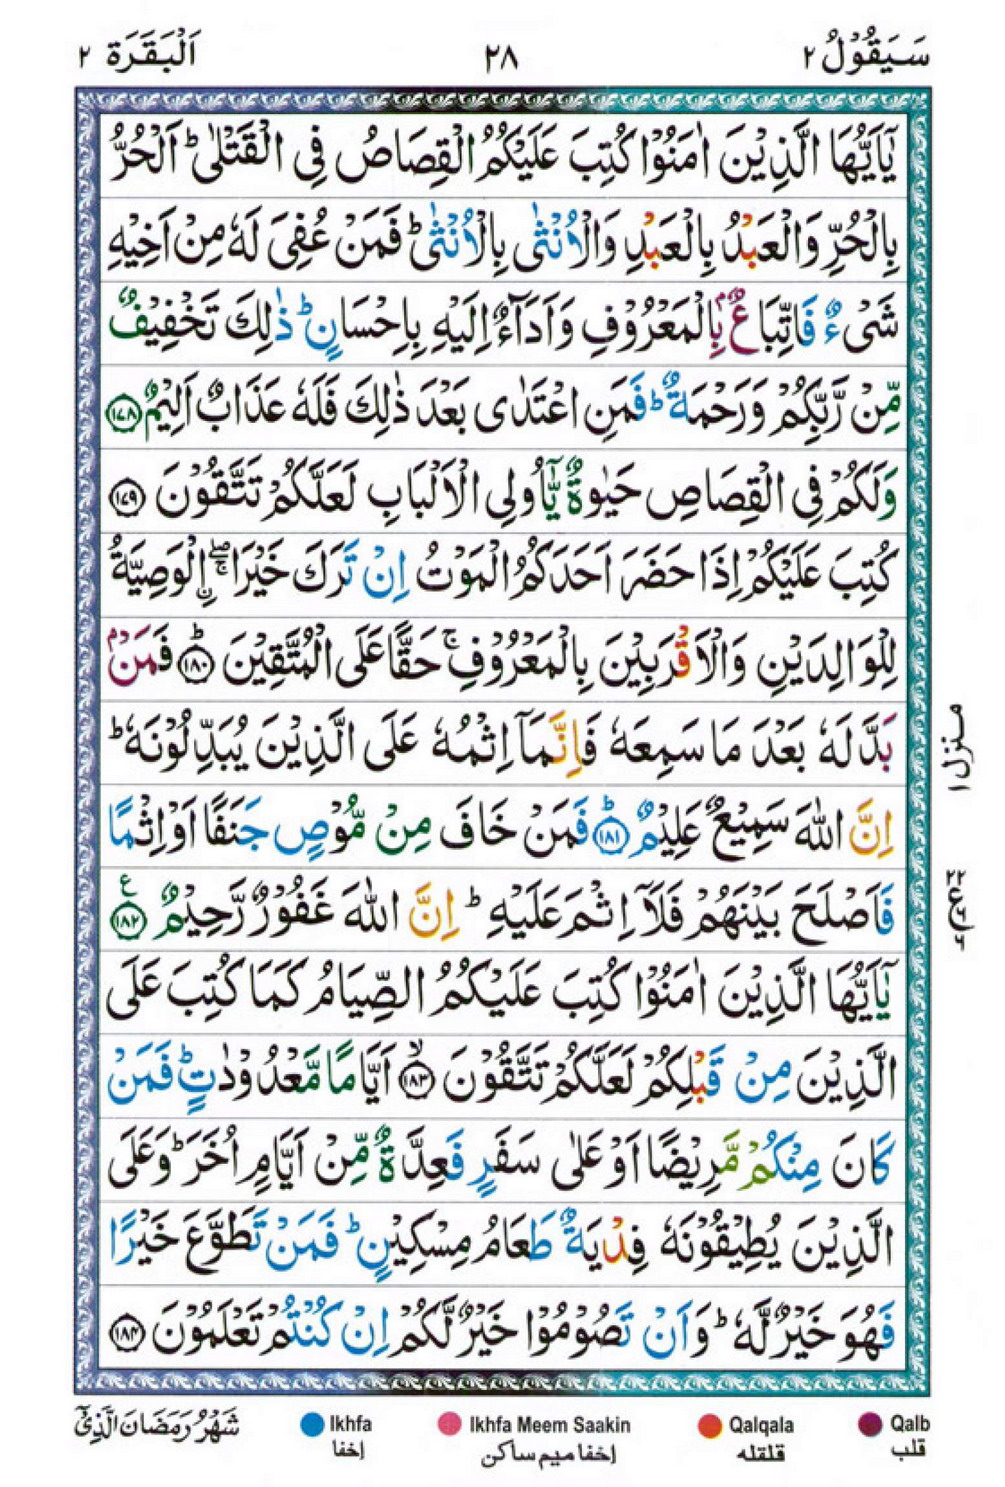 سَيَقُوْلُ ٢
٢٨
اَلْبَقَرَة ٢
يٰٓاَيُّهَا الَّذِيْنَ اٰمَنُوْا كُتِبَ عَلَيْكُمُ الْقِصَاصُ فِى الْقَتْلٰىؕ اَلْحُرُّ
بِالْحُرِّ وَالْعَبْدُ بِالْعَبْدِ وَالْاُنْثٰى بِالْاُنْثٰىؕ فَمَنْ عُفِىَ لَهٗ مِنْ اَخِيْهِ
شَىْءٌ فَاتِّبَاعٌۢ بِالْمَعْرُوْفِ وَاَدَآءٌ اِلَيْهِ بِاِحْسَانٍؕ ذٰلِكَ تَخْفِيْفٌ
مِّنْ رَّبِّكُمْ وَرَحْمَةٌؕ فَمَنِ اعْتَدٰى بَعْدَ ذٰلِكَ فَلَهٗ عَذَابٌ اَلِيْمٌ ﴿١٧٨﴾
وَلَكُمْ فِى الْقِصَاصِ حَيٰوةٌ يّٰٓاُولِى الْاَلْبَابِ لَعَلَّكُمْ تَتَّقُوْنَ ﴿١٧٩﴾
كُتِبَ عَلَيْكُمْ اِذَا حَضَرَ اَحَدَكُمُ الْمَوْتُ اِنْ تَرَكَ خَيْرَاۖۚ ۨالْوَصِيَّةُ
لِلْوَالِدَيْنِ وَالْاَقْرَبِيْنَ بِالْمَعْرُوْفِۚ حَقًّا عَلَى الْمُتَّقِيْنَؕ ﴿١٨٠﴾ فَمَنْۢ
بَدَّلَهٗ بَعْدَ مَا سَمِعَهٗ فَاِنَّمَآ اِثْمُهٗ عَلَى الَّذِيْنَ يُبَدِّلُوْنَهٗؕ
اِنَّ اللّٰهَ سَمِيْعٌ عَلِيْمٌؕ ﴿١٨١﴾ فَمَنْ خَافَ مِنْ مُّوْصٍ جَنَفًا اَوْ اِثْمًا
فَاَصْلَحَ بَيْنَهُمْ فَلَآ اِثْمَ عَلَيْهِؕ اِنَّ اللّٰهَ غَفُوْرٌ رَّحِيْمٌ ﴿١٨٢﴾ ع
يٰٓاَيُّهَا الَّذِيْنَ اٰمَنُوْا كُتِبَ عَلَيْكُمُ الصِّيَامُ كَمَا كُتِبَ عَلَى
الَّذِيْنَ مِنْ قَبْلِكُمْ لَعَلَّكُمْ تَتَّقُوْنَۙ ﴿١٨٣﴾ اَيَّامًا مَّعْدُوْدٰتٍؕ فَمَنْ
كَانَ مِنْكُمْ مَّرِيْضًا اَوْ عَلٰى سَفَرٍ فَعِدَّةٌ مِّنْ اَيَّامٍ اُخَرَؕ وَعَلَى
الَّذِيْنَ يُطِيْقُوْنَهٗ فِدْيَةٌ طَعَامُ مِسْكِيْنٍؕ فَمَنْ تَطَوَّعَ خَيْرًا
فَهُوَ خَيْرٌ لَّهٗؕ وَاَنْ تَصُوْمُوْا خَيْرٌ لَّكُمْ اِنْ كُنْتُمْ تَعْلَمُوْنَ ﴿١٨٤﴾
منزل ١
شَهْرُ رَمَضَانَ الَّذِىْٓ
Ikhfa
إخفا
Ikhfa Meem Saakin
إخفا ميم ساكن
Qalqala
قلقله
Qalb
قلب